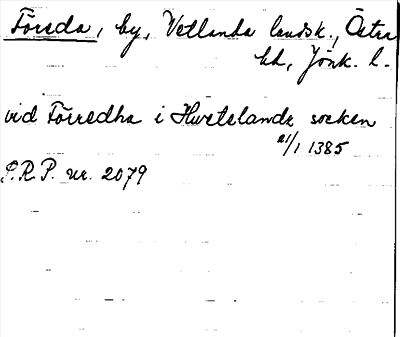 Föreda, by, Vetlanda landsk., Östra
hd, Jönk. l.
vid Förredha i Hwetelande socken
21/1 1385
S.R.P. nr. 2079